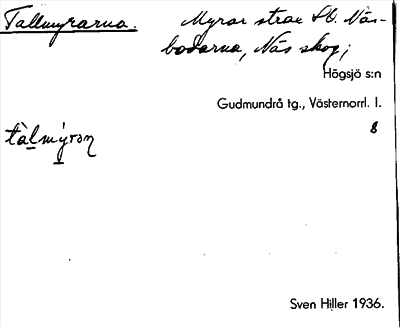 Tallmyrarna. Myrar strax SO. Näs-
bodarna, Näs skog;
Högsjö s:n
Gudmundrå tg., Västernorrl. l.
8
tàlmýrɔn
Sven Hiller 1936.